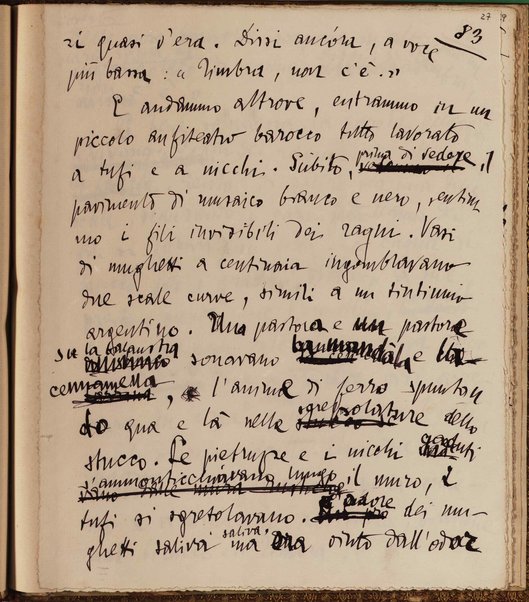 27
83
zi quasi v'era. Dissi ancóra, a voce
più bassa: « Timbra, non c'è. »
E andammo altrove, entrammo in un
piccolo anfiteatro barocco tutto lavorato
a tufi e a nicchi. Sùbito, prima di vedere, il
pavimento di musaico bianco e nero, sentim
mo i fili invisibili dei ragni. Vasi
di mughetti a centinaia ingombravano
due scale curve, simili a un tintinnio
argentino. Una pastora e un pastore
su la balaustra
sonavano la mandòla e la
cennamella, l'anima di ferro spuntan
do qua e là nelle sgretolature dello
stucco. Le pietruzze e i nicchi caduti
s'ammonticchiavano lungo il muro, i
tufi si sgretolavano. L'odore dei mu-
ghetti saliva saliva, ma era vinto dall'odor